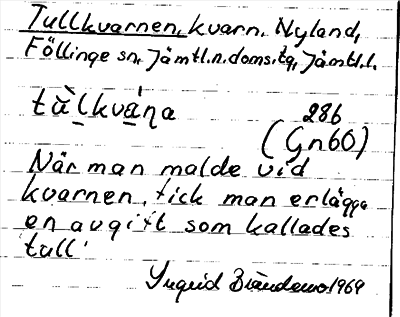 Tullkvarnen, kvarn, Nyland,
Föllinge sn, Jämtl.n.doms.tg, Jämtl.l.
tu̱̇̀lkvá̱ɳa
286
(Gn60)
När man malde vid
kvarnen, fick man erlägga
en avgift som kallades
tull.
Ingrid 1969